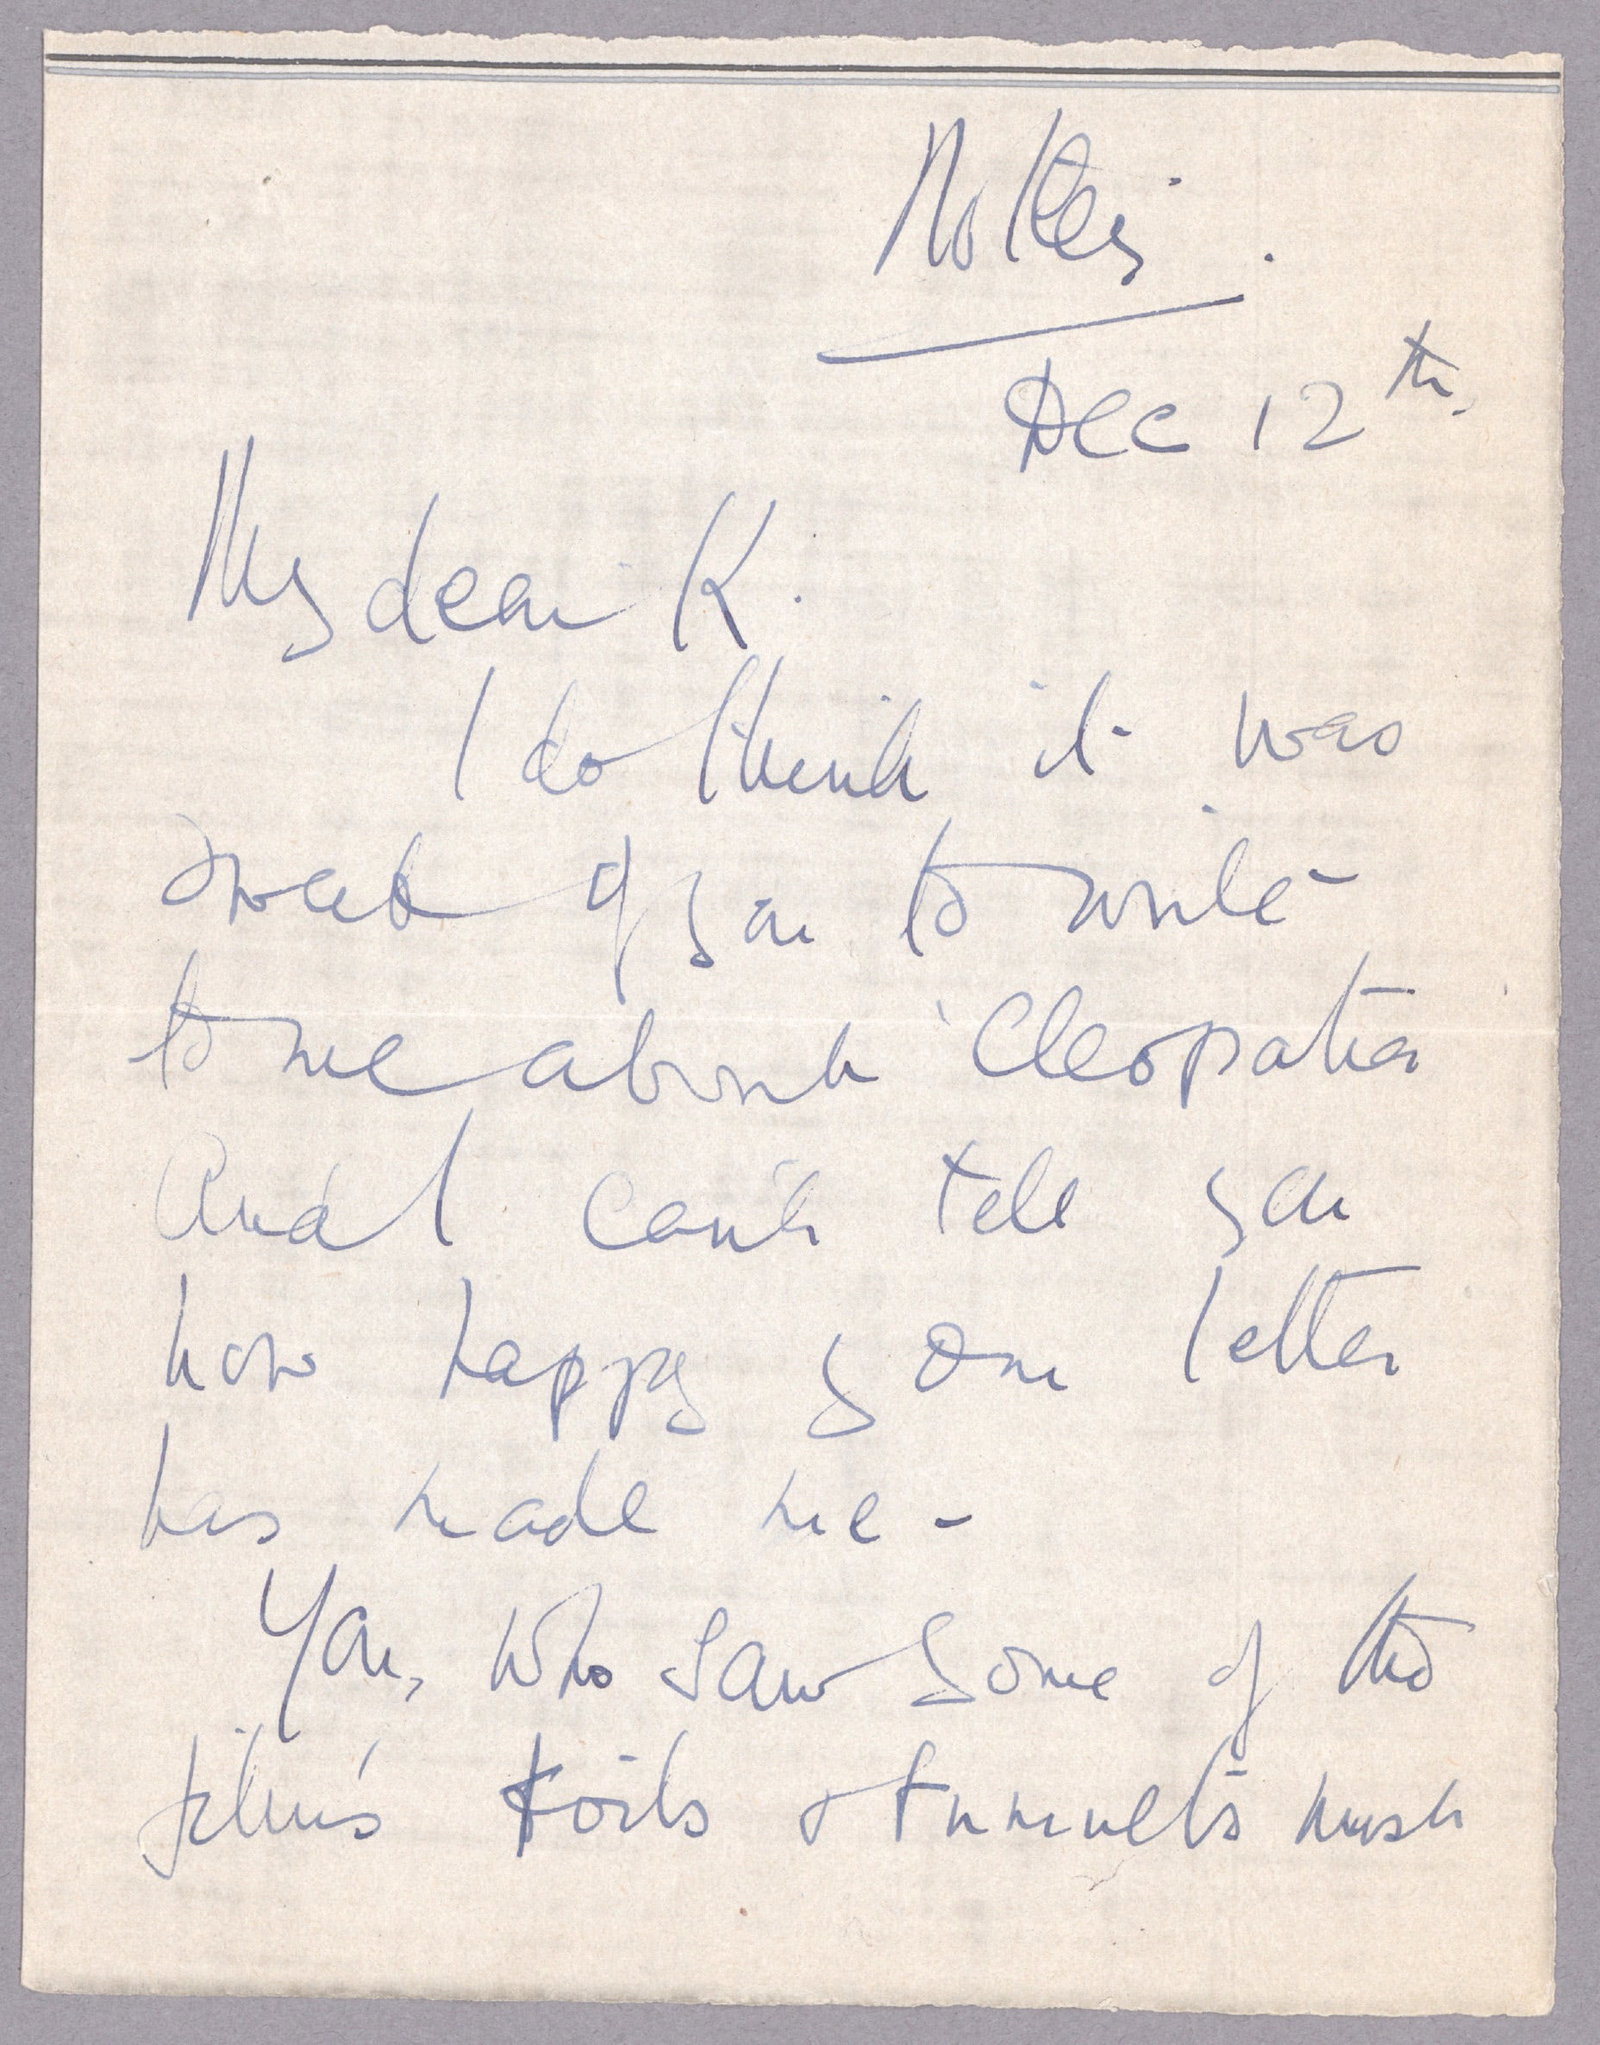 Notley.
Dec 12th.
My dear K.
I do think it was
sweet of you to write
to me about 'Cleopatra
And I can't tell you
how happy your letter
has made me -
You, who saw some of the
film's toils & tumults must